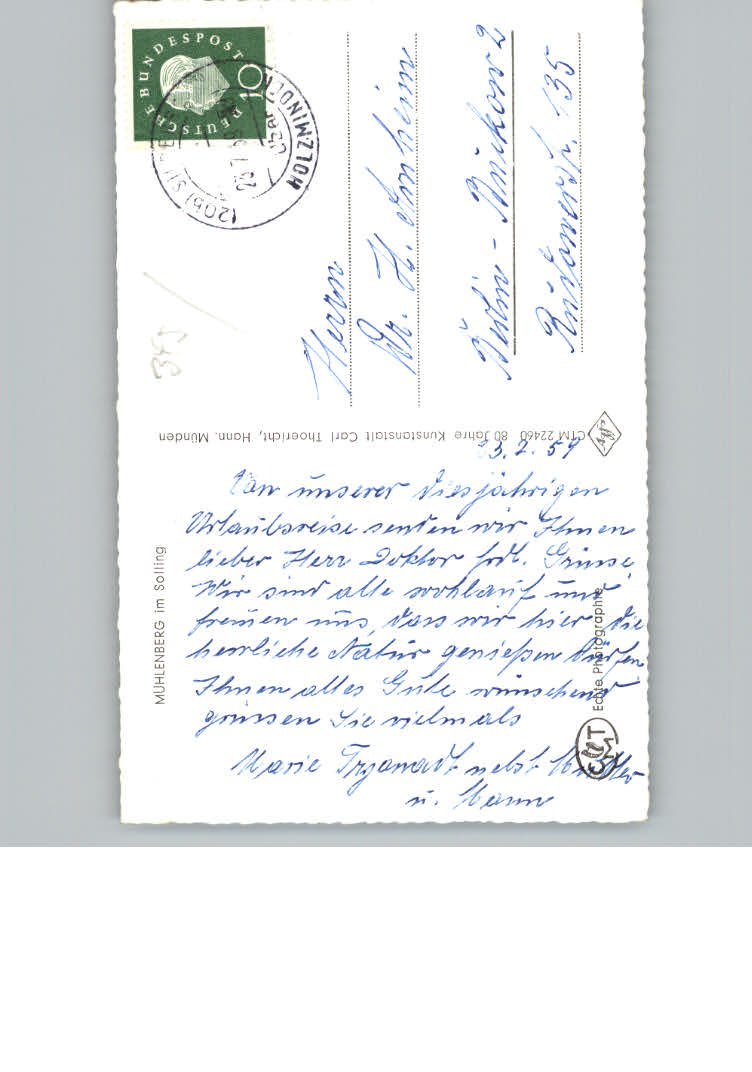 DEUTSCHE BUNDESPOST
10
HOLZMINDEN
(20b)
Herrn
Dr. H.
Berlin - Buckow 2
135
CTM 22460 80 Jahre Kunstanstalt Carl Thoericht, Hann. Münden
Agfa
23.7.59
Von unserer diesjährigen
Urlaubsreise senden wir Ihnen
lieber Herr Doktor frdl. Grüsse,
Wir sind alle wohlauf und
freuen uns, dass wir hier die
herrliche Natur genießen dürfen,
Ihnen alles Gute wünschend
grüssen Sie vielmals
Marie nebst Mutter
u. Mann
MÜHLENBERG im Solling
Echte Photographie
CTM